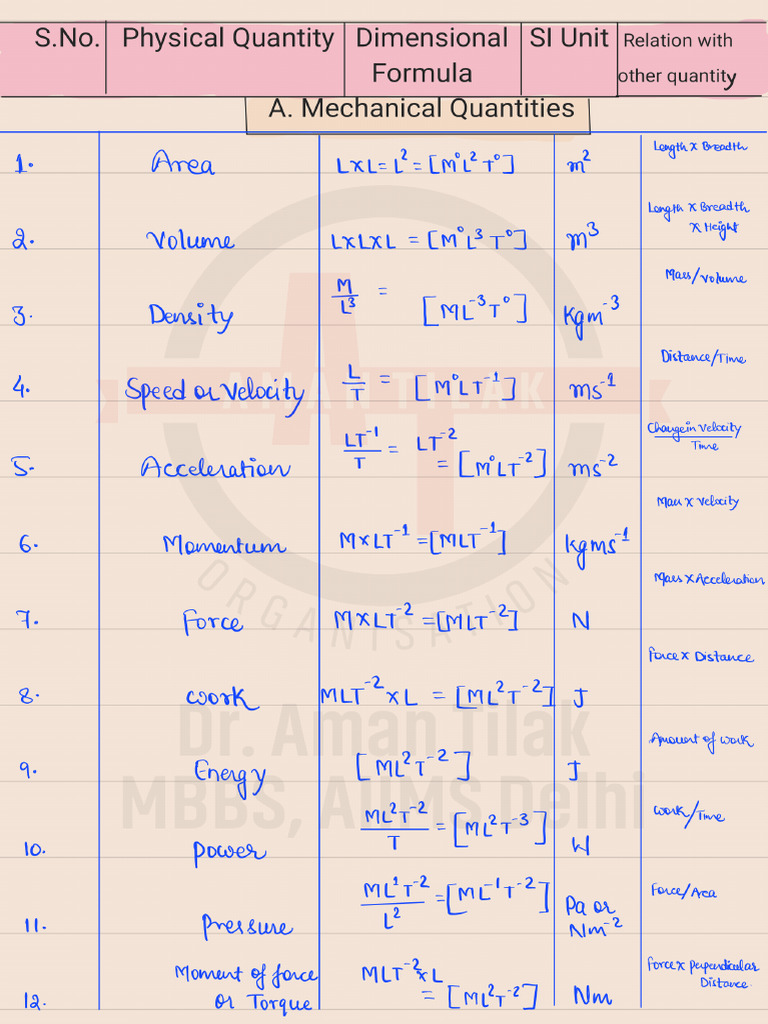 S.No. Physical Quantity Dimensional Formula SI Unit Relation with other quantity
A. Mechanical Quantities
1. Area L×L=L²=[M⁰L²T⁰] m² Length × Breadth
2. Volume L×L×L =[M⁰L³T⁰] m³ Length × Breadth × Height
3. Density M/L³ = [ML⁻³T⁰] Kgm⁻³ Mass/Volume
4. Speed or Velocity L/T = [M⁰LT⁻¹] ms⁻¹ Distance/Time
5. Acceleration LT⁻¹/T = LT⁻² = [M⁰LT⁻²] ms⁻² Change in Velocity/Time
6. Momentum M×LT⁻¹ =[MLT⁻¹] kgms⁻¹ Mass × Velocity
7. Force M×LT⁻² =[MLT⁻²] N Mass × Acceleration
8. Work MLT⁻² ×L = [ML²T⁻²] J Force × Distance
9. Energy [ML²T⁻²] J Amount of work
10. power ML²T⁻²/T = [ML²T⁻³] W Work/Time
11. Pressure ML¹T⁻²/L² =[ML⁻¹T⁻²] Pa or Nm⁻² Force/Area
12. Moment of force or Torque MLT⁻²×L = [ML²T⁻²] Nm Force × Perpendicular Distance
AMAN TILAK
ORGANISATION
Dr. Aman Tilak
MBBS, AIIMS Delhi